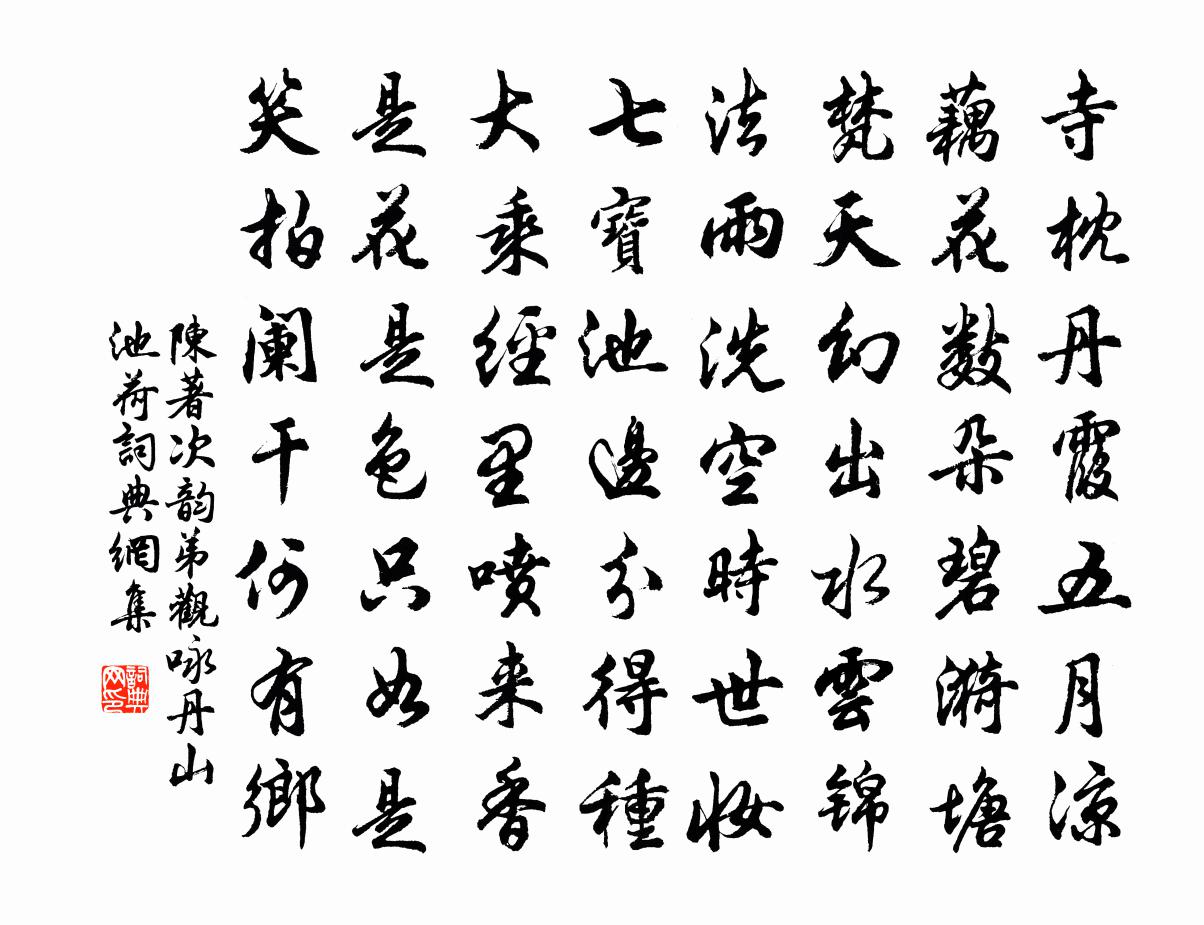 寺枕丹霞五月凉
藕花数朵碧漪塘
梵天幻出水雲锦
法雨洗空時世妆
七寶池邊分得種
大乘經里噴来香
是花是色只如是
笑拍阑干何有鄉
陳著次韵弟觀咏丹山
池荷詞典網集
詞典网印